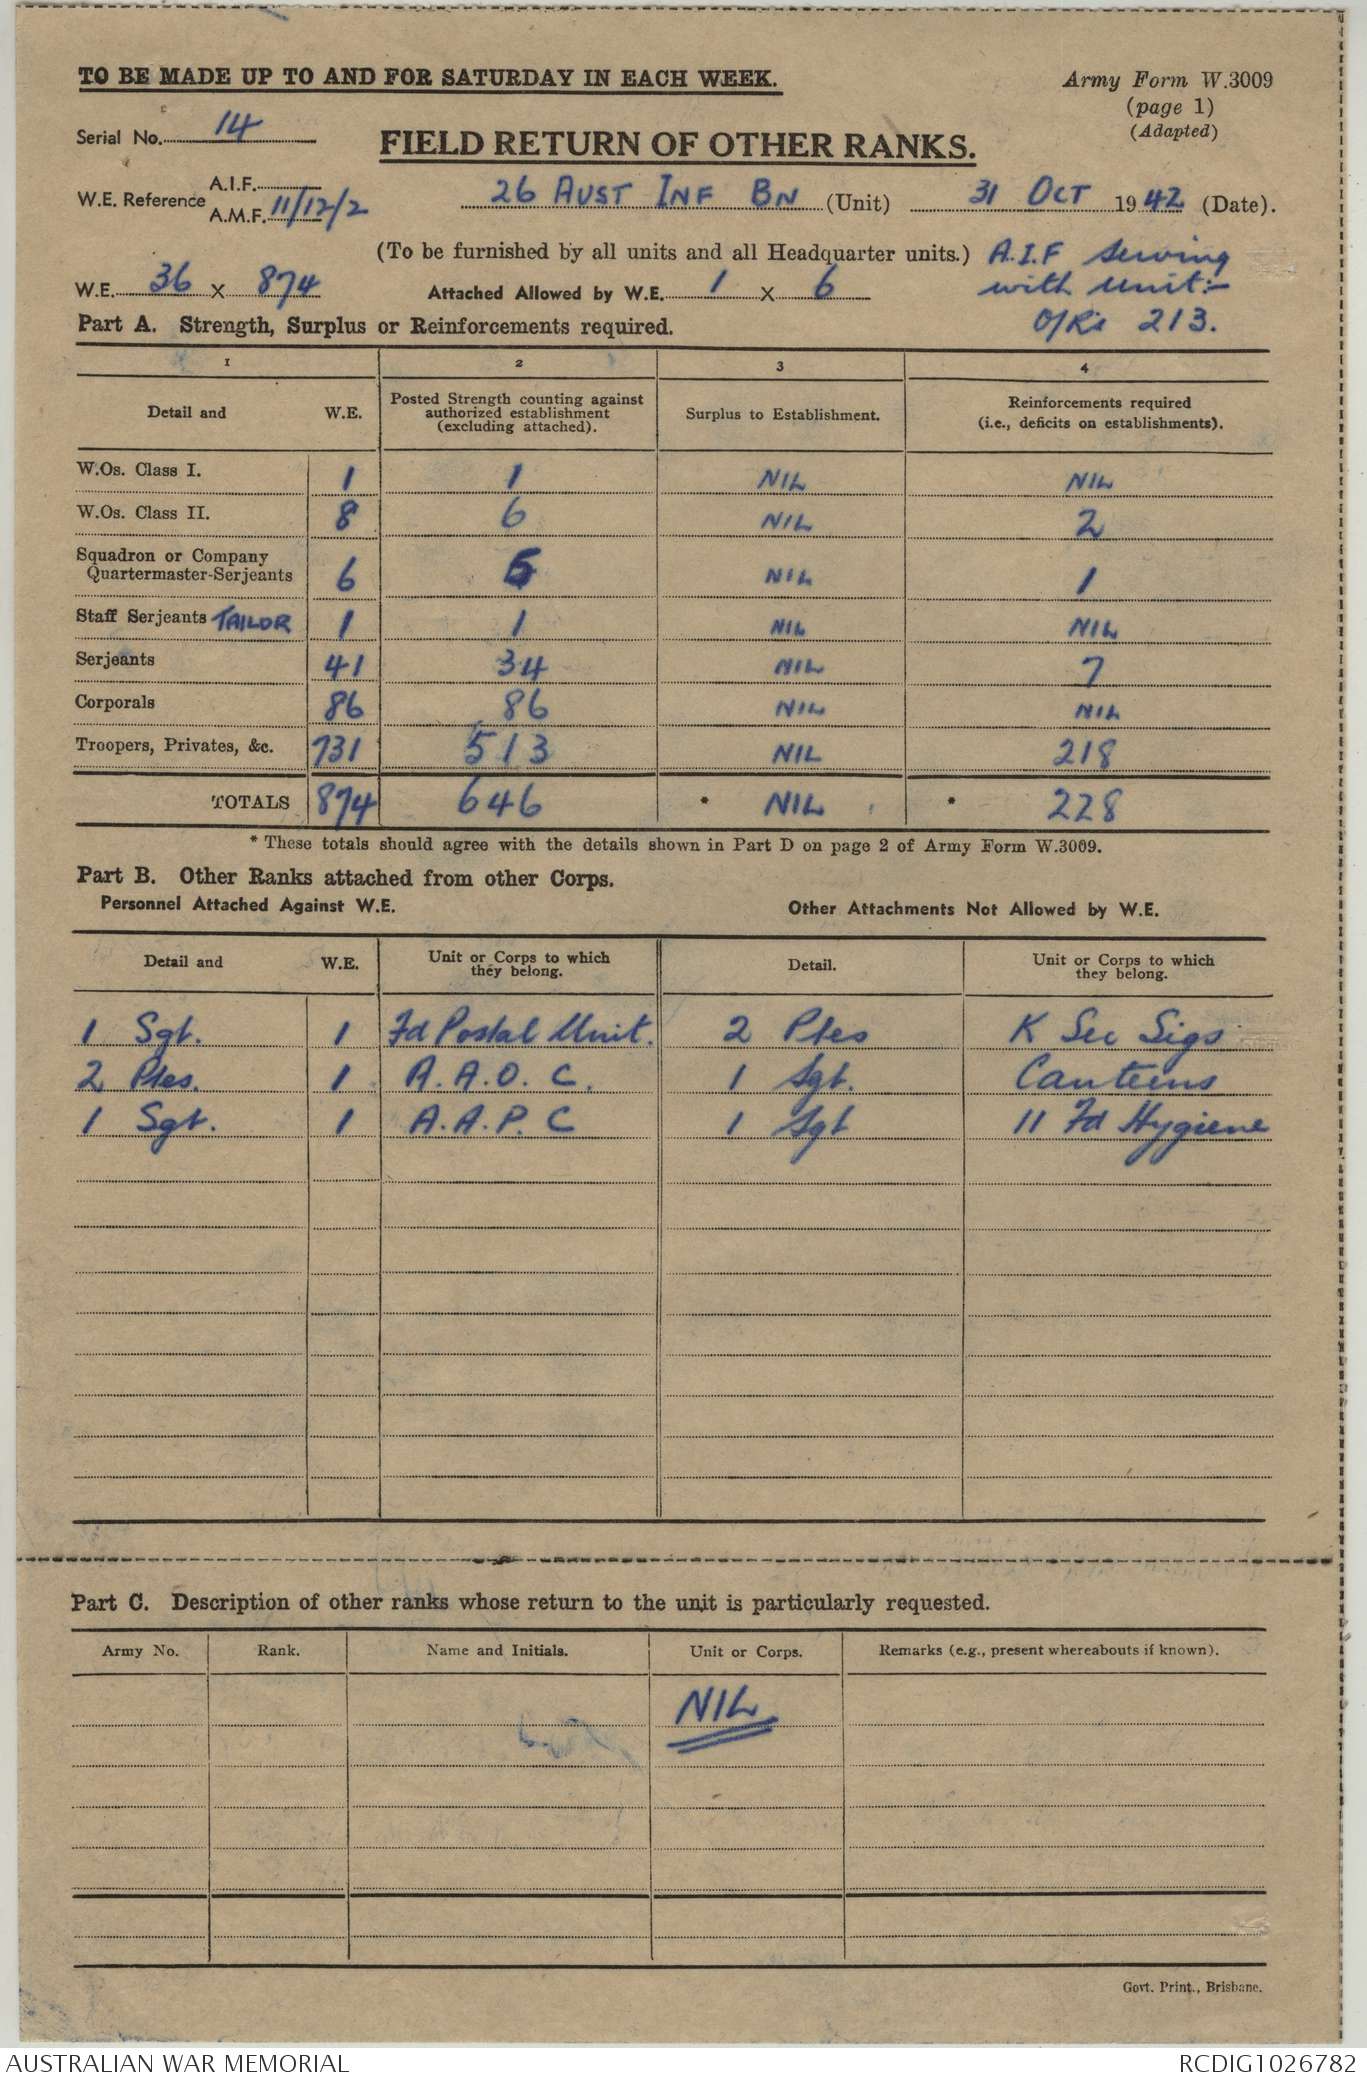 TO BE MADE UP TO AND FOR SATURDAY IN EACH WEEK.
Army Form W.3009
(page 1)
(Adapted)
Serial No. 14
FIELD RETURN OF OTHER RANKS.
W.E. Reference A.I.F.
A.M.F. 11/12/2
26 AUST INF BN (Unit) 31 OCT 1942 (Date).
(To be furnished by all units and all Headquarter units.)
A.I.F serving
with unit:-
O/Rs 213.
W.E. 36 X 874 Attached Allowed by W.E. 1 X 6
Part A. Strength, Surplus or Reinforcements required.
1 2 3 4
Detail and W.E. Posted Strength counting against authorized establishment (excluding attached). Surplus to Establishment. Reinforcements required (i.e., deficits on establishments).
W.Os. Class I. 1 1 NIL NIL
W.Os. Class II. 8 6 NIL 2
Squadron or Company
Quartermaster-Serjeants 6 5 NIL 1
Staff Serjeants TAILOR 1 1 NIL NIL
Serjeants 41 34 NIL 7
Corporals 86 86 NIL NIL
Troopers, Privates, &c. 731 513 NIL 218
TOTALS 874 646 * NIL * 228
* These totals should agree with the details shown in Part D on page 2 of Army Form W.3009.
Part B. Other Ranks attached from other Corps.
Personnel Attached Against W.E. Other Attachments Not Allowed by W.E.
Detail and W.E. Unit or Corps to which they belong. Detail. Unit or Corps to which they belong.
1 Sgt. 1 Fd Postal Unit. 2 Ptes K Sec Sigs
2 Ptes. 1 A.A.O.C. 1 Sgt. Canteens
1 Sgt. 1 A.A.P.C 1 Sgt 11 Fd Hygiene
Part C. Description of other ranks whose return to the unit is particularly requested.
Army No. Rank. Name and Initials. Unit or Corps. Remarks (e.g., present whereabouts if known).
NIL
Govt. Print., Brisbane.
AUSTRALIAN WAR MEMORIAL
RCDIG1026782